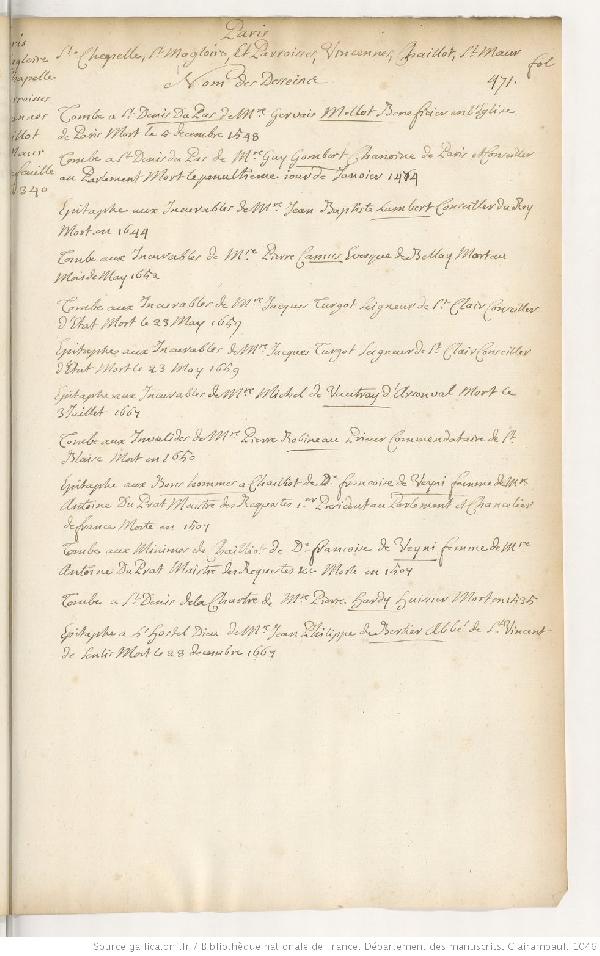 Paris
Ste Chapelle, St Magloire, et Parroisses, Vincennes, Chaillot, St Maur
fol
471.
Nom des Desseins
Tombe a St Denis Du Pas de Mre Gervais Mellot Beneficier en l'Eglise
de Paris Mort le 4 decembre 1548
Tombe a St Denis du Pas de Mre Guy Gombert Chanoine de Paris et Conseiller
au Parlement Mort le penultieme jour de Janvier 1474
Epitaphe aux Incurables de Mre Jean Baptiste Lambert Conseiller du Roy
Mort en 1644
Tombe aux Incurables de Mre Pierre Camus Evesque de Bellay Mort au
Mois de May 1652
Tombe aux Incurables de Mre Jacques Turgot Seigneur de St Clair Conseiller
d'Etat Mort le 23 May 1659
Epitaphe aux Incurables de Mre Jacques Turgot Seigneur de St Clair Conseiller
d'Etat Mort le 23 May 1659
Epitaphe aux Incurables de Mre Michel de Vautray d'Arsonval Mort le
3 Juillet 1667
Tombe aux Invalides de Mre Pierre Robineau Prieur Commendataire de St
Blaise Mort en 1650
Epitaphe aux Bons hommes a Chaillot de De Francoise de Veyni femme de Mre
Antoine Du Prat Maistre des Requestes 1er President au Parlement et Chancelier
de france Morte en 1507
Tombe aux Minimes de Chaillot de De Francoise de Veyni femme de Mre
Antoine Du Prat Maistre des Requestes &c Morte en 1507
Tombe a St Denis de la Chartre de Mre Pierre Hardy Huissier Mort en 1535
Epitaphe a l'Hostel Dieu de Mre Jean Philippe de Bertier Abbé de St Vincent
de Senlis Mort le 28 decembre 1667
Source gallica.bnf.fr / Bibliothèque nationale de France. Département des manuscrits. Clairambault. 1046